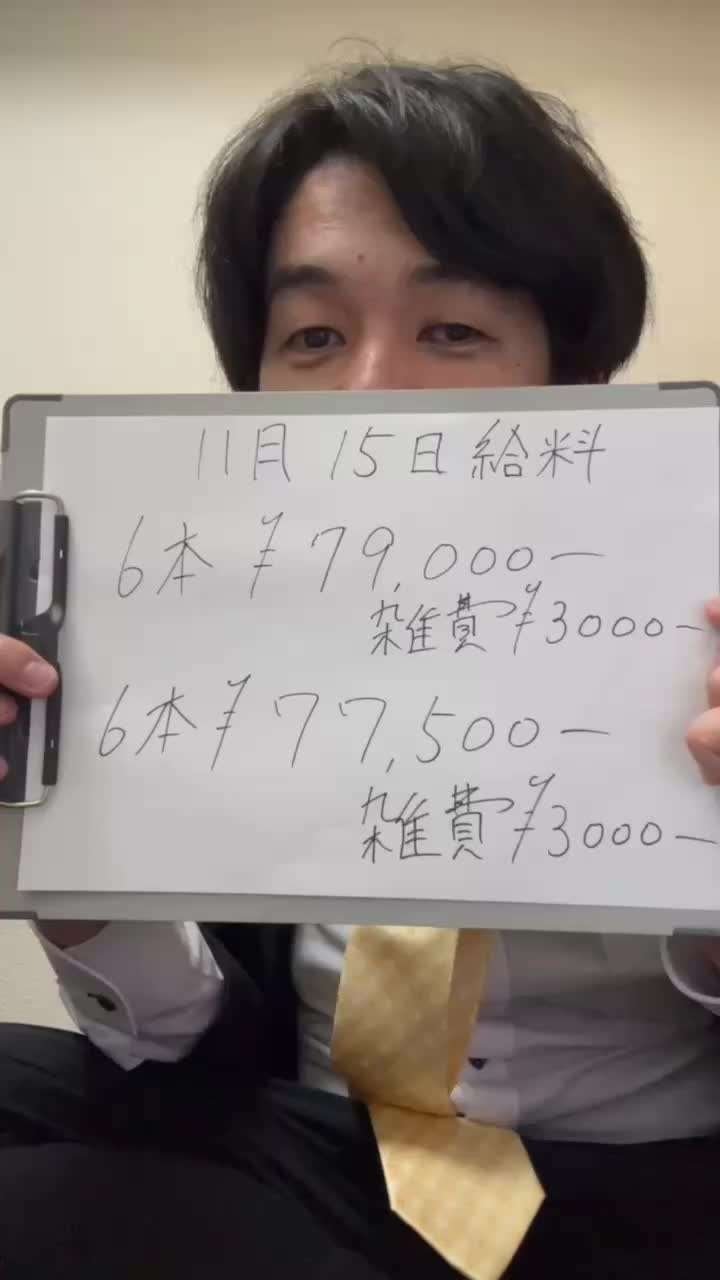 11月 15日給料
6本 ¥79,000ー
雑費¥3000ー
6本¥77,500ー
雑費¥3000ー